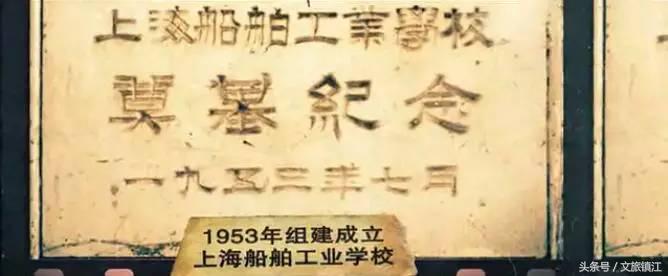 上海船舶工業學校
奠基紀念
一九五三年七月
1953年组建成立
上海船舶工业学校
头条号 / 文旅镇江